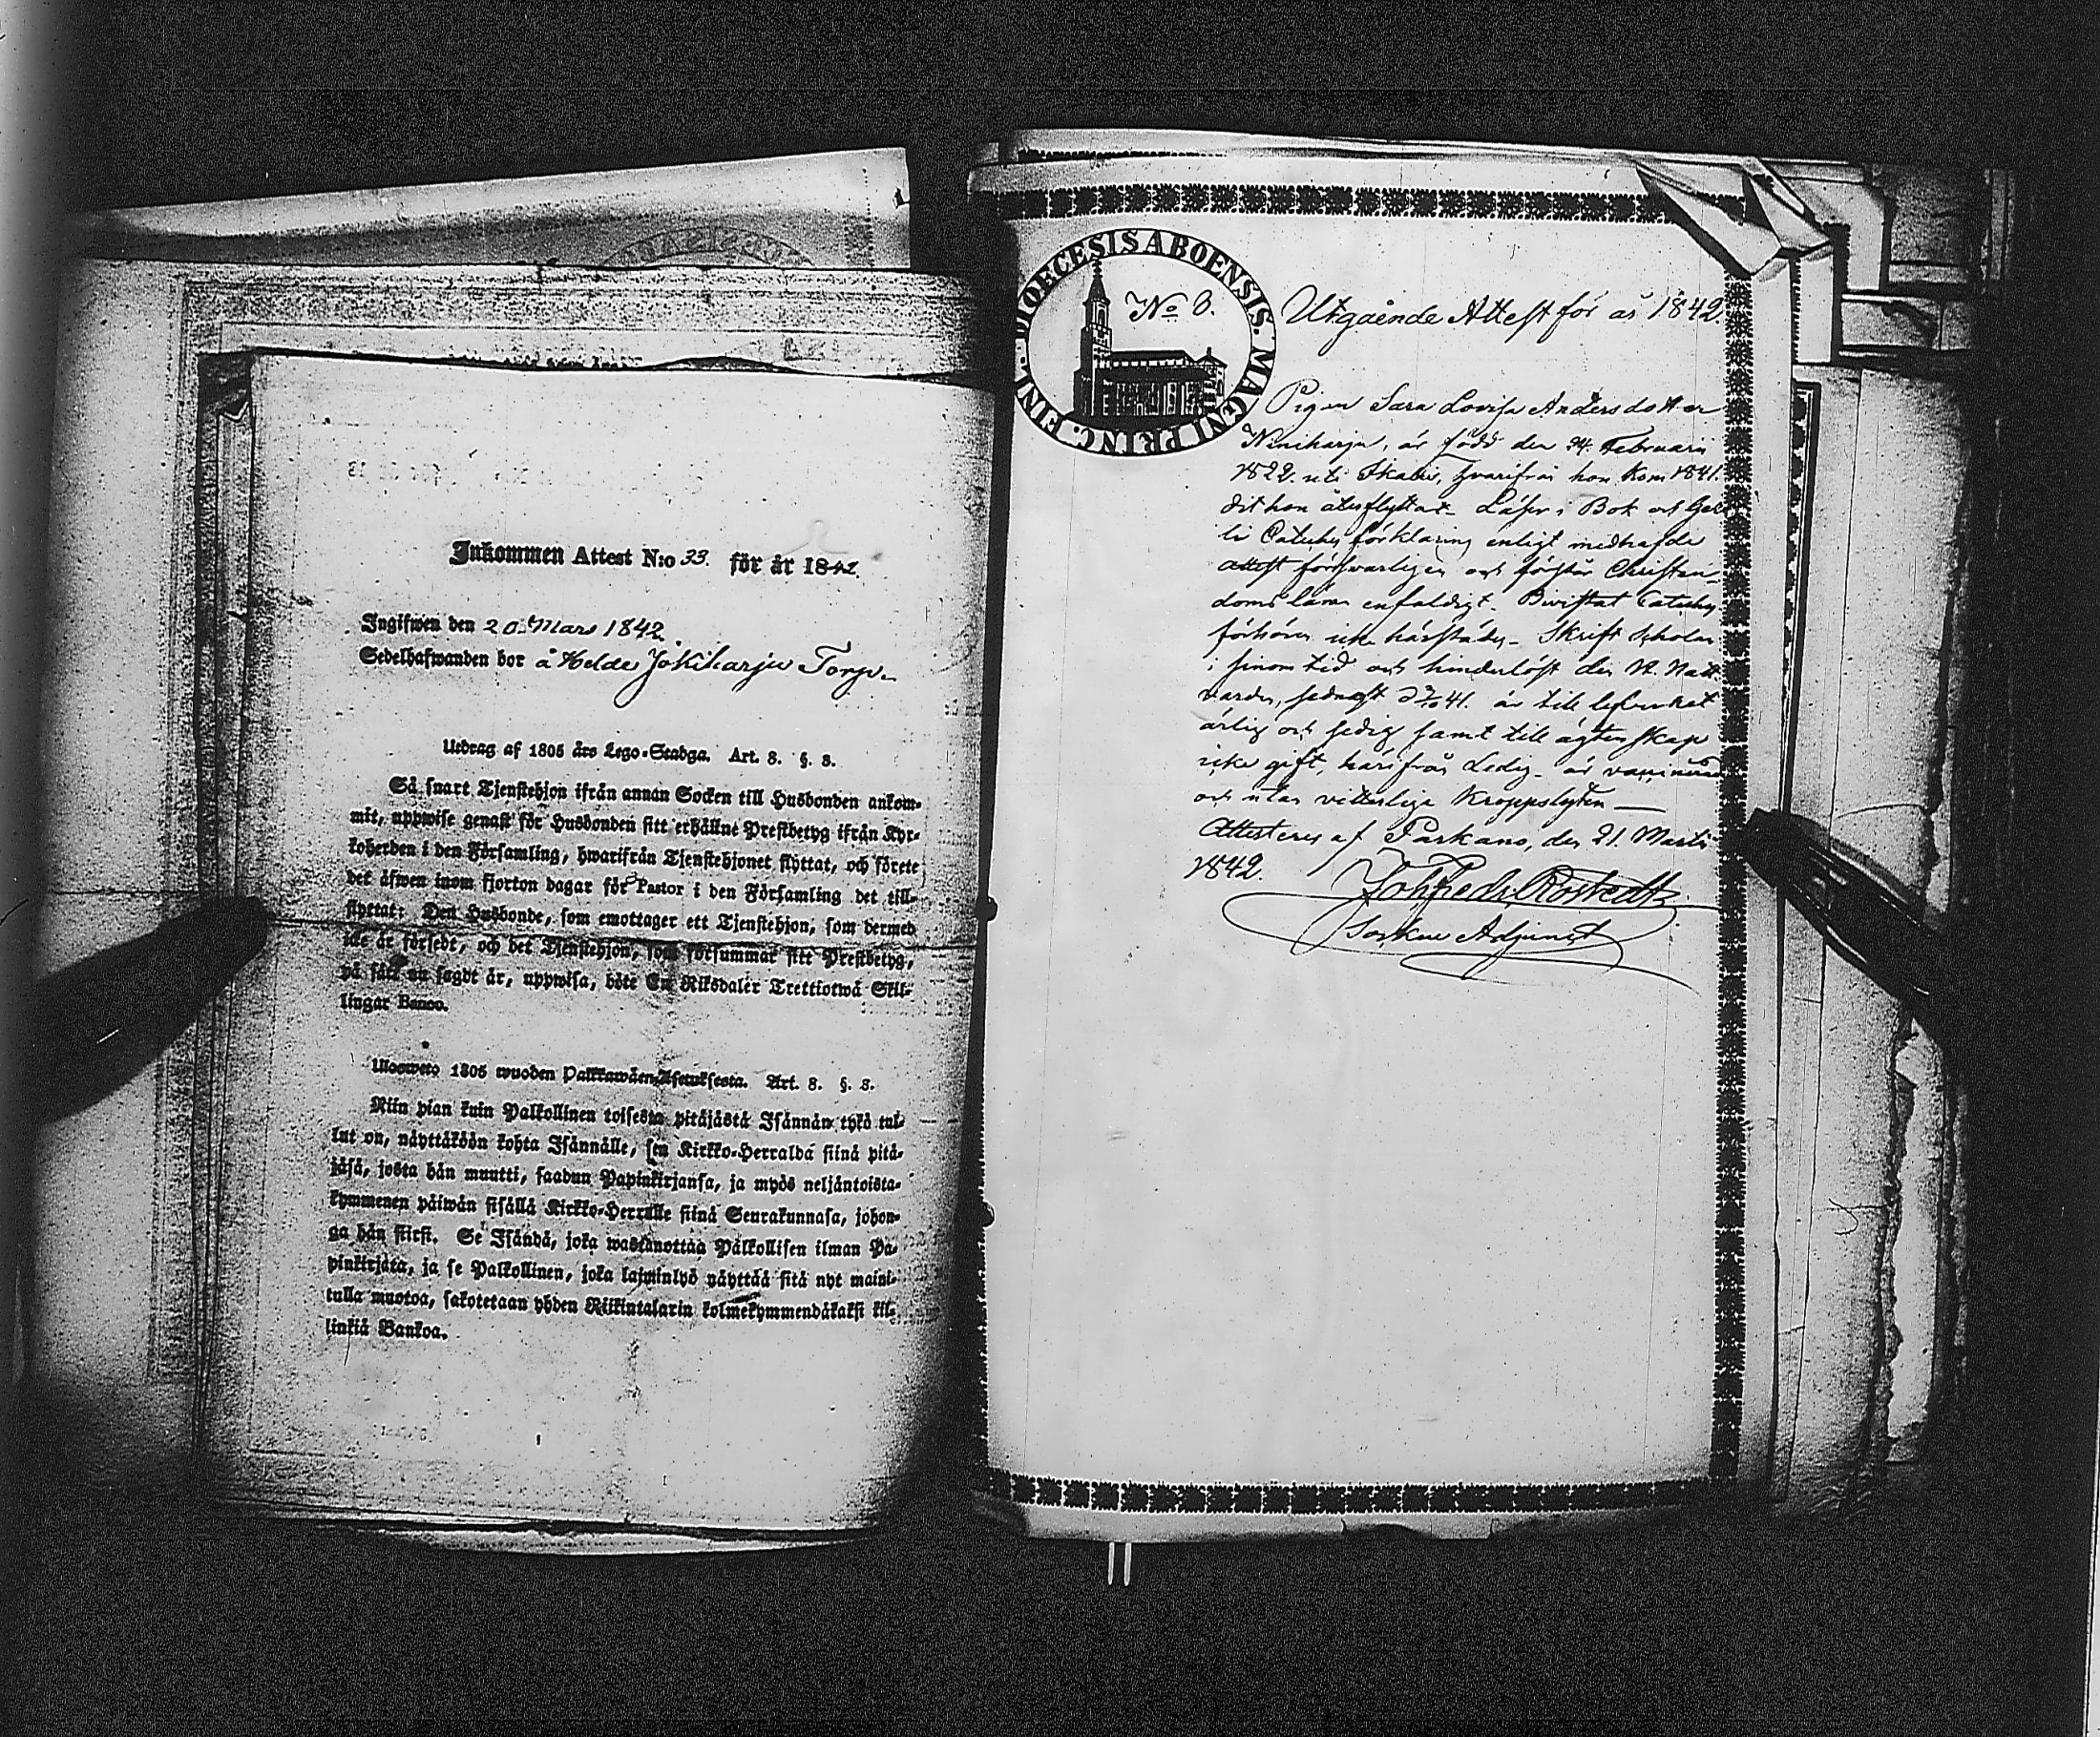 Inkommen Attest N:o 33. för år 1842.
Ingifwen den 20. Mars 1842.
Sedelhafwanden bor å Helde Jokiharju Torp.
Utdrag af 1805 års Lego-Stadga. Art. 8. §. 3.
Så snart Tjenstehjon ifrån annan Socken till Husbonden ankom-
mit, uppwise genast för Husbonden sitt erhållne Prestbetyg ifrån Kyr-
koherden i den Församling, hwarifrån Tjenstehjonet flyttat, och förete
det äfwen inom fjorton dagar för Pastor i den Församling det till-
flyttat: Den Husbonde, som emottager ett Tjenstehjon, som dermed
icke är försedt, och det Tjenstehjon, som försummar sitt Prestbetyg,
på sätt nu sagdt är, uppwisa, böte En Riksdaler Trettiotwå Skil-
lingar Banco.
Ulosweto 1805 wuoden Palkkawäen-Asetuksesta. Art. 8. §. 3.
Niin pian kuin Palkollinen toisesta pitäjästä Isännän tykö tul-
lut on, näyttäköön kohta Isännälle, sen Kirkko-Herralda siinä pitä-
jäsä, josta hän muutti, saadun Papinkirjansa, ja myös neljäntoista-
kymmenen päiwän sisällä Kirkko-Herralle siinä Seurakunnasa, johon-
ga hän siirsi. Se Isändä, joka wastanottaa Palkollisen ilman Pa-
pinkirjata, ja se Palkollinen, joka laiminlyö näyttää sitä nyt maini-
tulla muotoa, sakotetaan yhden Riikintalarin kolmekymmendäkaksi kil-
linkiä Bankoa.
DIOECESIS ABOENSIS MAGNI PRINC. FINL.
No 8.
Utgående Attest för år 1842.
Pigan Sara Lovisa Andersdotter
är född den 24. Februarii
1822. uti Ikalis, hvarifrån hon kom 1841.
dit hon återflyttar. Läser i Bok och
förklaring enligt medhafde
attest försvarligen och förstår Christen-
doms läran enfaldigt. Bivistat Catech.
förhören icke härstädes. Skrift Scholan
i sinom tid och hinderlöst den H. Natt-
varden, sednast 3/10 41. är till lefvernet
ärlig och sedig samt till ägtenskap
icke gift, härifrån Ledig. är vaccinerad
och utan vitterliga Kroppslyten
Attesteras af Parkano, den 21. Martii
1842.
Joh Fredr Rostedt
Sockne Adjunct